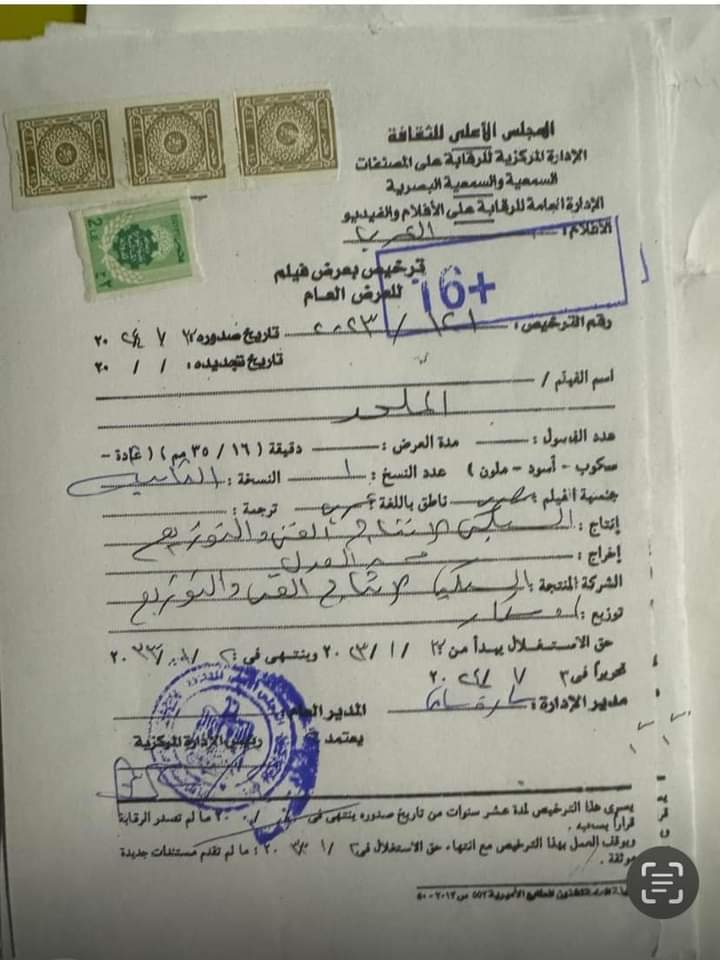 المجلس الأعلى للثقافة
الإدارة المركزية للرقابة على المصنفات
السمعية والسمعية البصرية
الإدارة العامة للرقابة على الأفلام والفيديو
الأفلام: العربية
+16
ترخيص بعرض فيلم
للعرض العام
رقم الترخيص: ١٢١ / ٢٠٢٣ تاريخ صدوره ٧ ٢٠٢٤
تاريخ تجديده: / / ٢٠
اسم الفيلم /
الملحد
عدد الفصول: مدة العرض: دقيقة (١٦ / ٣٥ مم) (عادة -
سكوب - أسود - ملون) عدد النسخ: ١ النسخة:
جنسية الفيلم: مصرى ناطق باللغة: عربى ترجمة:
إنتاج: السبكى للإنتاج الفنى والتوزيع
إخراج: محمد العدل
الشركة المنتجة: السبكى للإنتاج الفنى والتوزيع
توزيع:
حق الاستغلال يبدأ من / ١ / ٢٠٢٣ وينتهى فى: ٢٠٣٣
تحريراً فى ٣ ٧ ٢٠٢٤
مدير الإدارة: سارة المدير العام:
يعتمد
رئيس الإدارة المركزية
يسرى هذا الترخيص لمدة عشر سنوات من تاريخ صدوره ينتهى فى / / ٢٠ ما لم تصدر الرقابة
قراراً بسحبه.
ويوقف العمل بهذا الترخيص مع انتهاء حق الاستغلال فى ما لم تقدم مستندات جديدة
موثقة.
الأميرية ٥٥٢ س ٢٠١٢ - ٥٠